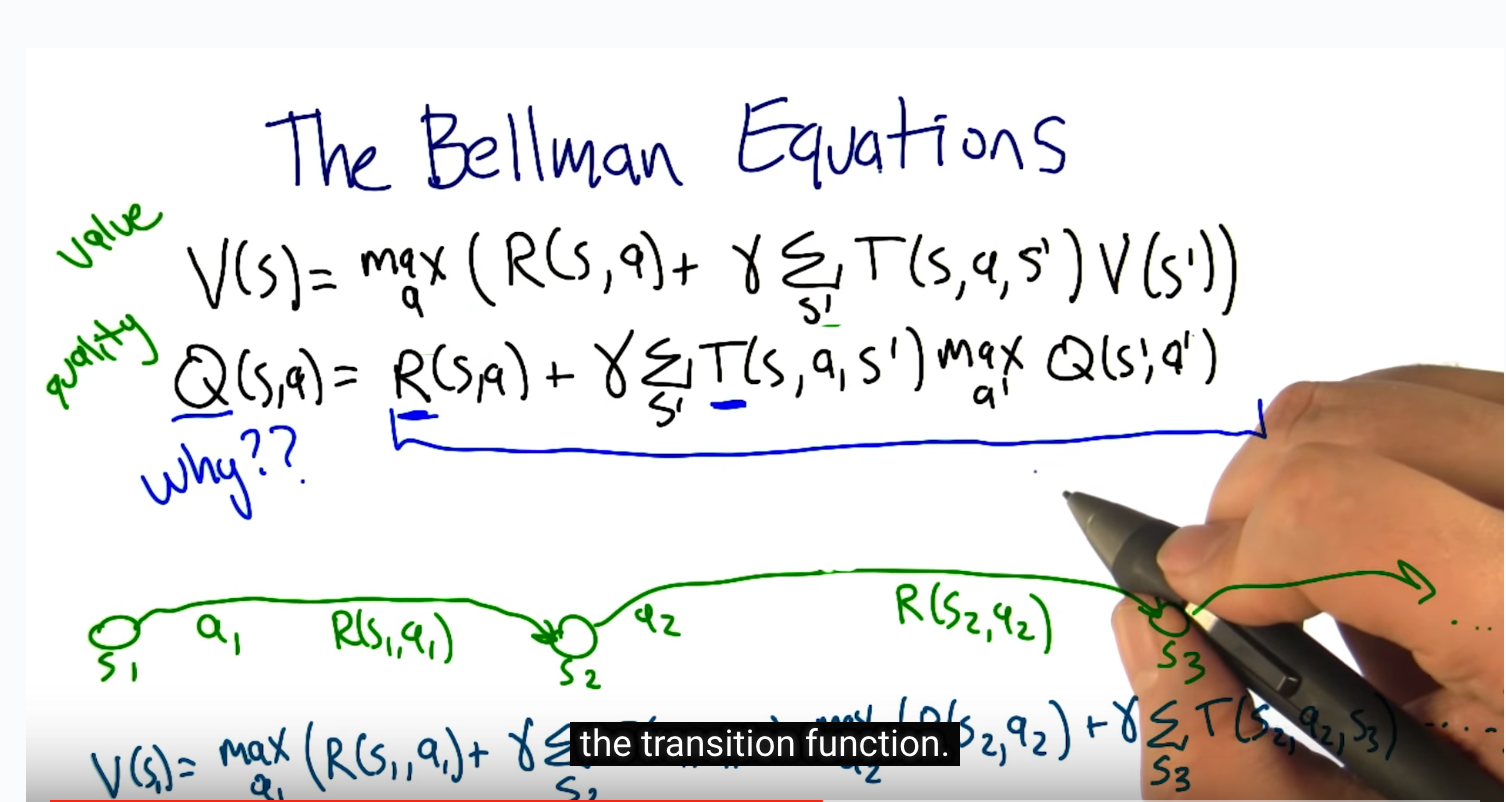 The Bellman Equations
value
V(s) = max_a (R(s,a) + γ Σ_s' T(s,a,s') V(s'))
quality
Q(s,a) = R(s,a) + γ Σ_s' T(s,a,s') max_a' Q(s',a')
why??
a₁ R(s₁,a₁) a₂ R(s₂,a₂) ....
s₁ s₂ s₃
V(s₁) = max_a₁ (R(s₁,a₁) + γ Σ_s₂ (R(s₂,a₂) + γ Σ_s₃ T(s₂,a₂,s₃) ....
the transition function.